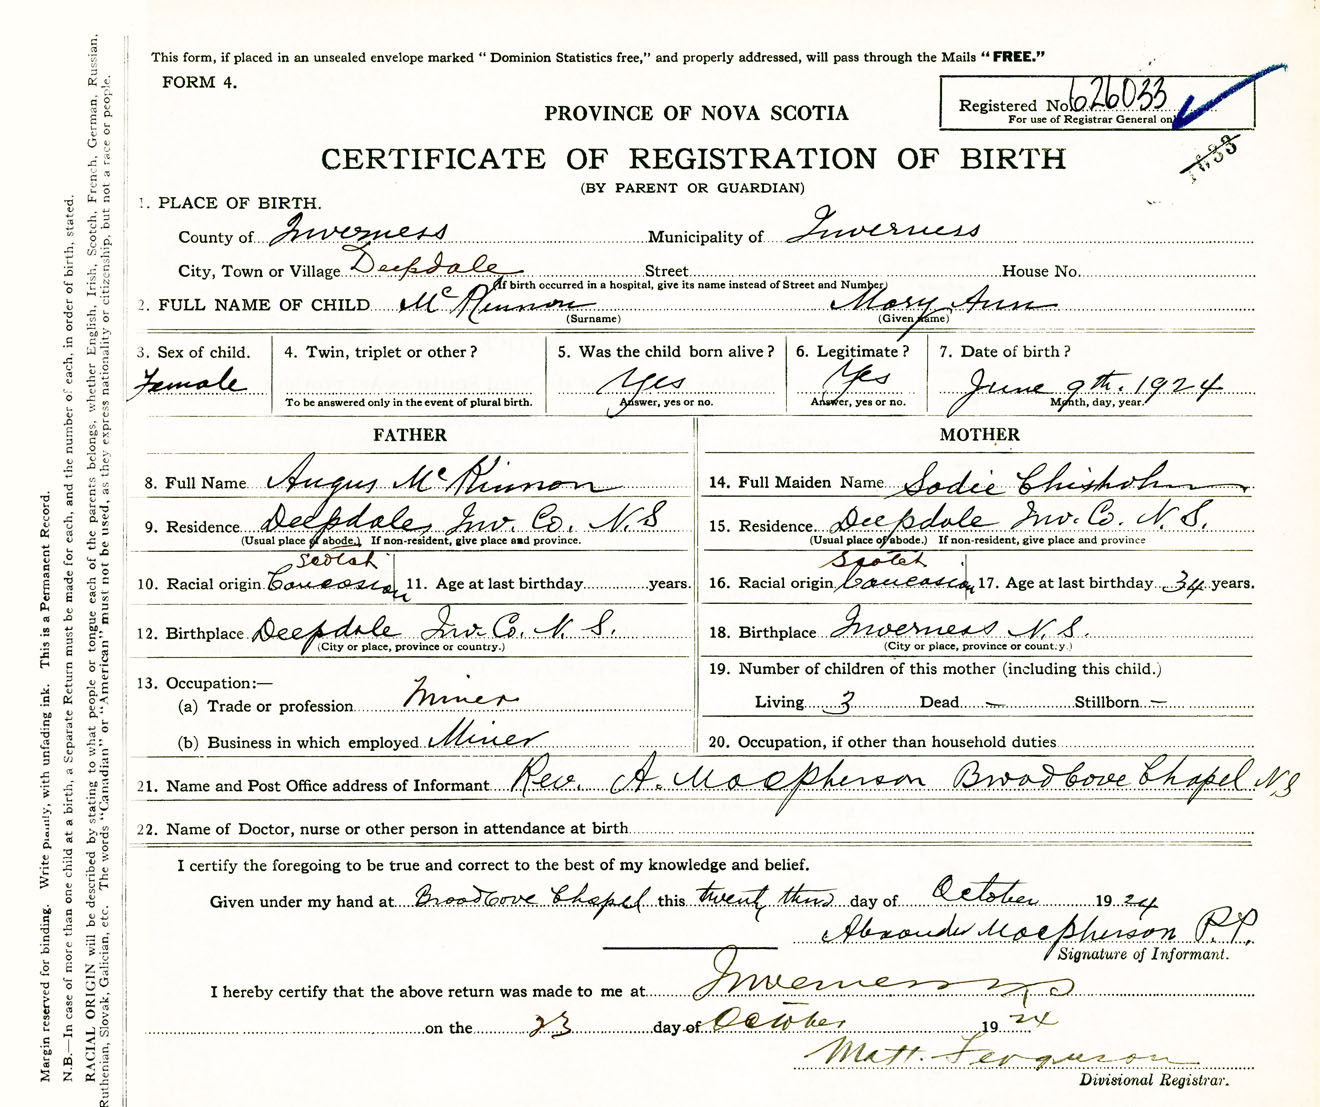 This form, if placed in an unsealed envelope marked “ Dominion Statistics free,” and properly addressed, will pass through the Mails “ FREE.”
FORM 4.
Registered No. 626033
For use of Registrar General only
PROVINCE OF NOVA SCOTIA
1633
CERTIFICATE OF REGISTRATION OF BIRTH
(BY PARENT OR GUARDIAN)
1. PLACE OF BIRTH.
County of Inverness Municipality of Inverness
City, Town or Village Deepdale Street House No.
(If birth occurred in a hospital, give its name instead of Street and Number)
2. FULL NAME OF CHILD McKinnon Mary Ann
(Surname) (Given name)
3. Sex of child. 4. Twin, triplet or other? 5. Was the child born alive? 6. Legitimate? 7. Date of birth?
Female Yes Yes June 9th. 1924
To be answered only in the event of plural birth. Answer, yes or no. Answer, yes or no. Month, day, year.
FATHER
8. Full Name Angus McKinnon
9. Residence Deepdale, Inv. Co. N. S
(Usual place of abode.) If non-resident, give place and province.
Scotch
10. Racial origin Caucasian 11. Age at last birthday years.
12. Birthplace Deepdale Inv. Co. N. S.
(City or place, province or country.)
13. Occupation:—
(a) Trade or profession Miner
(b) Business in which employed Miner
MOTHER
14. Full Maiden Name Sadie Chisholm
15. Residence Deepdale Inv. Co. N. S.
(Usual place of abode.) If non-resident, give place and province
Scotch
16. Racial origin Caucasian 17. Age at last birthday 34 years.
18. Birthplace Inverness N. S.
(City or place, province or country.)
19. Number of children of this mother (including this child.)
Living 3 Dead — Stillborn —
20. Occupation, if other than household duties
21. Name and Post Office address of Informant Rev. A. Macpherson Broad Cove Chapel N S
22. Name of Doctor, nurse or other person in attendance at birth
I certify the foregoing to be true and correct to the best of my knowledge and belief.
Given under my hand at Broad Cove Chapel this twenty third day of October 1924
Alexander Macpherson P.P.
Signature of Informant.
I hereby certify that the above return was made to me at Inverness
on the 23 day of October 1924
Matt. Ferguson
Divisional Registrar.
Margin reserved for binding. Write plainly, with unfading ink. This is a Permanent Record.
N.B.—In case of more than one child at a birth, a Separate Return must be made for each, and the number of each, in order of birth, stated.
RACIAL ORIGIN will be described by stating to what people or tongue each of the parents belongs, whether English, Irish, Scotch, French, German, Russian,
Ruthenian, Slovak, Galician, etc. The words “Canadian” or “American” must not be used, as they express nationality or citizenship, but not a race or people.